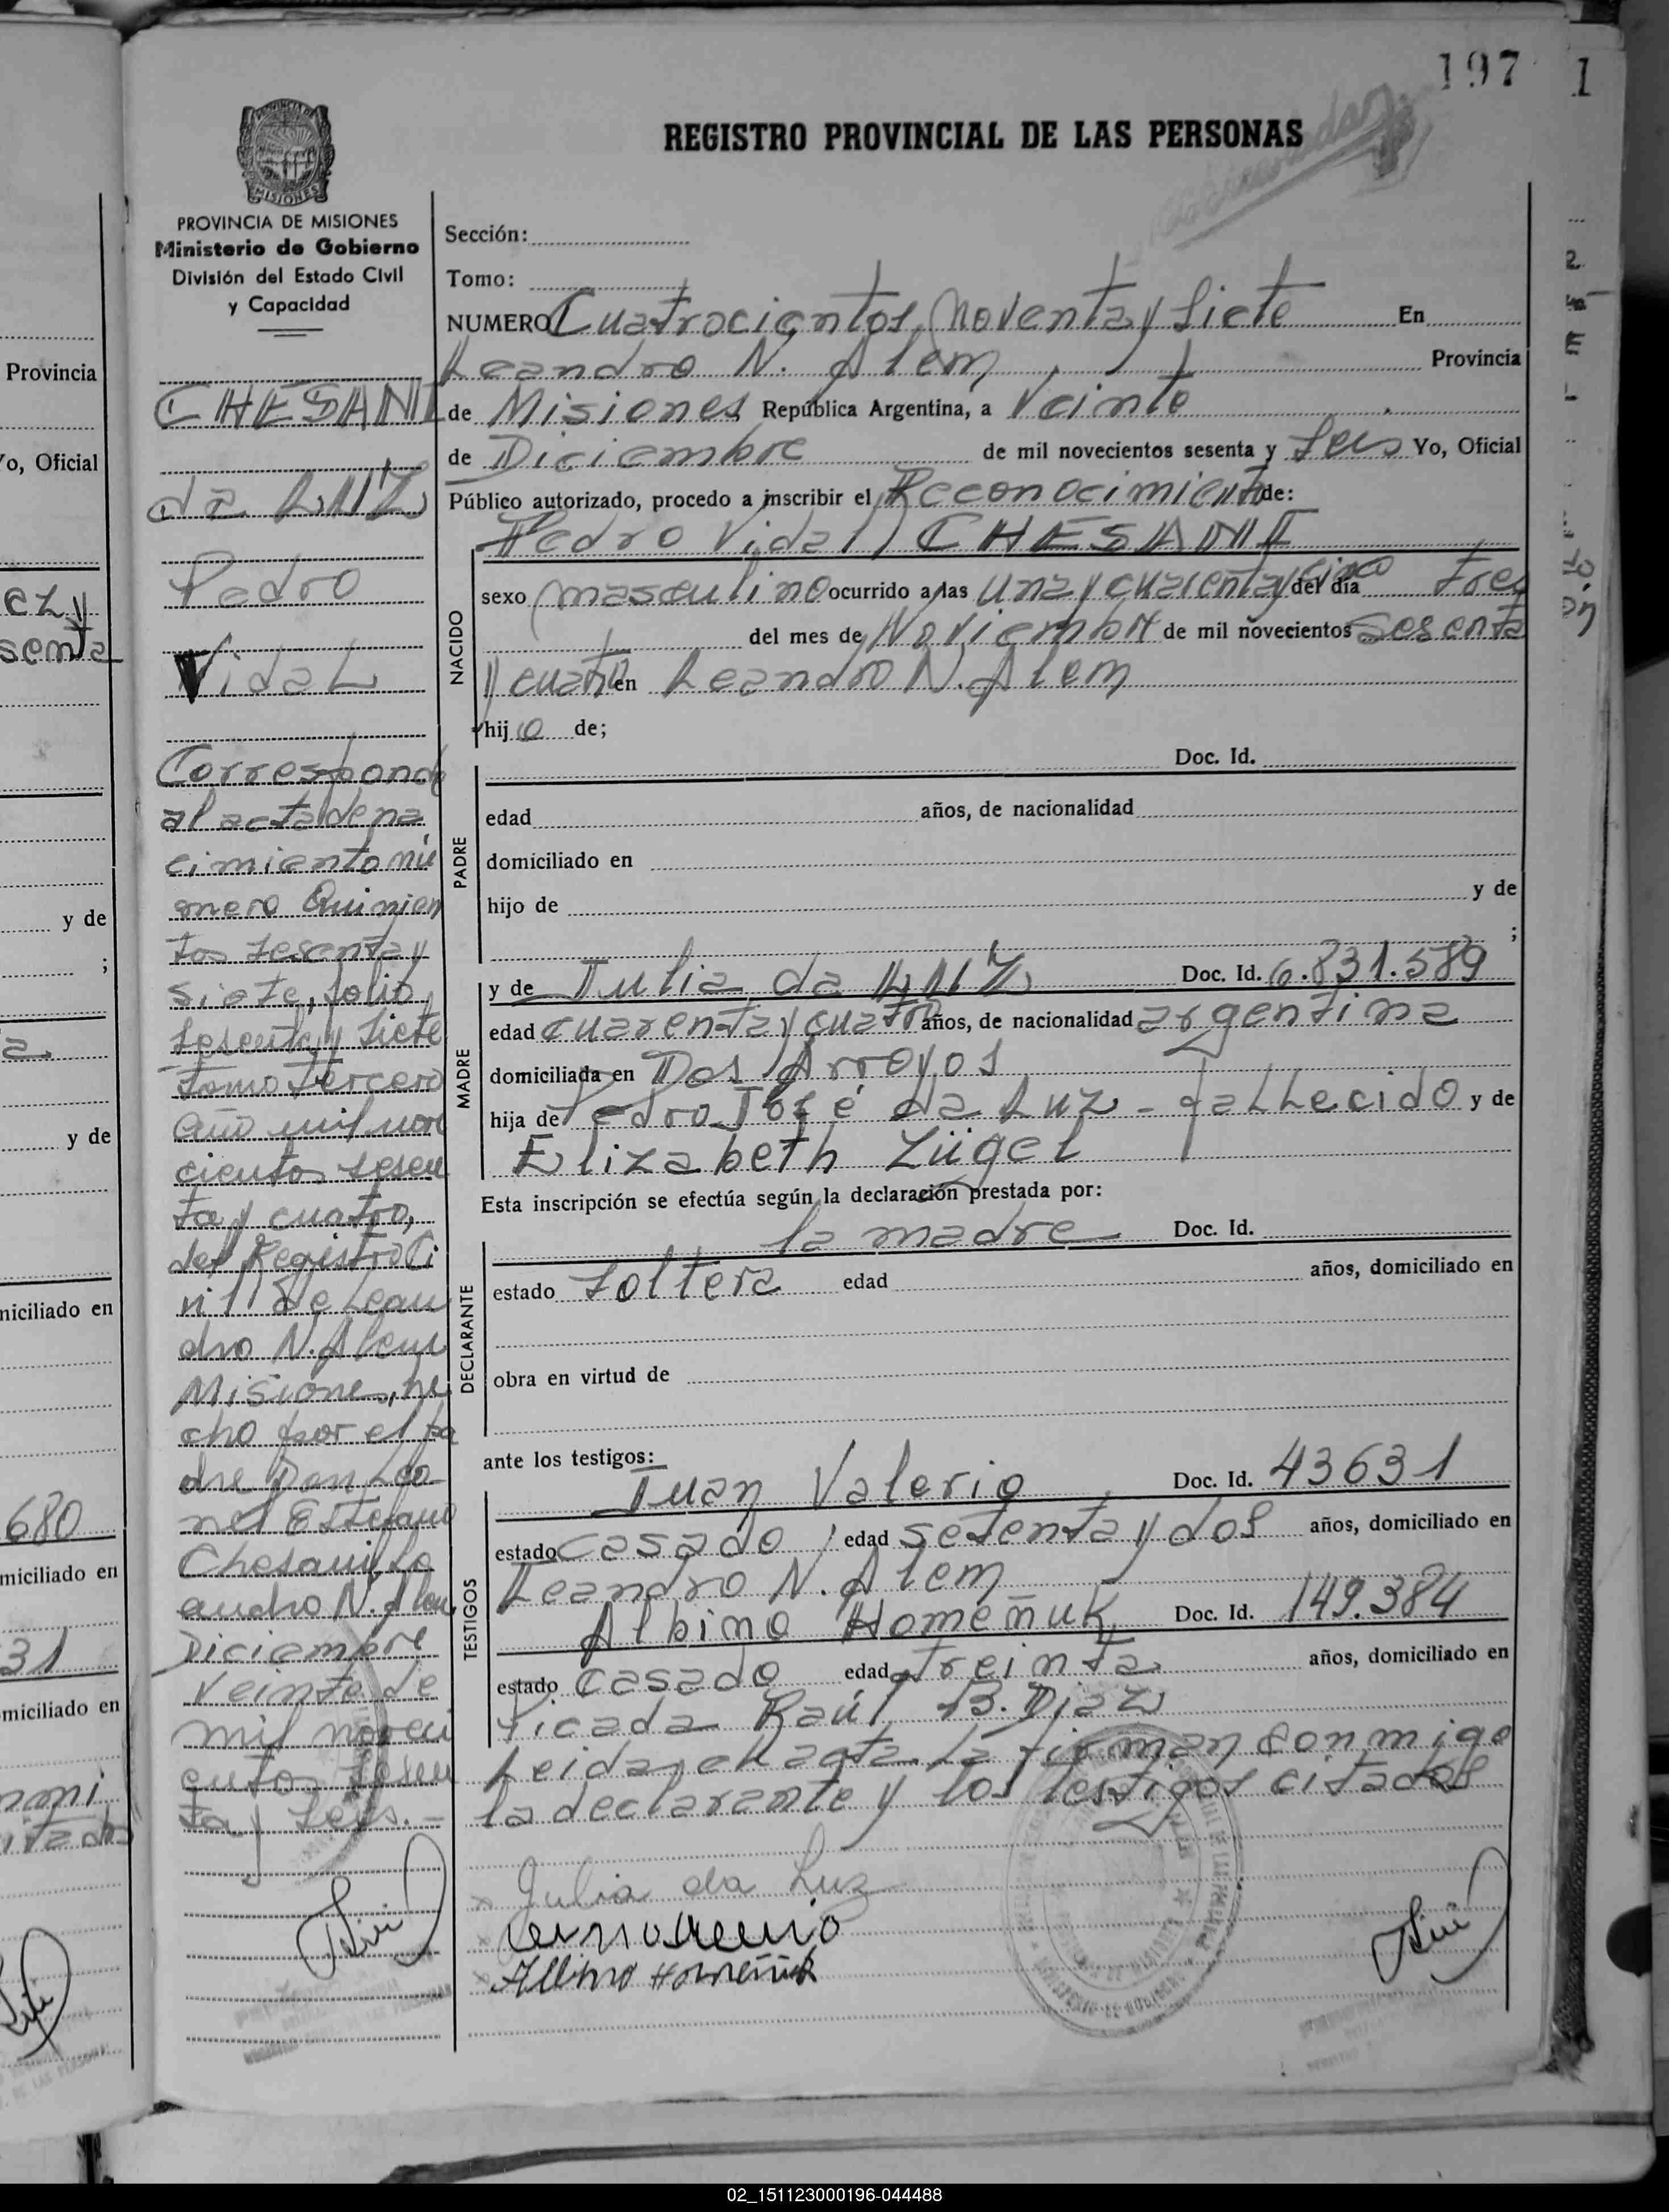 197
1
REGISTRO PROVINCIAL DE LAS PERSONAS
PROVINCIA DE MISIONES
Ministerio de Gobierno
División del Estado Civil
y Capacidad
Sección:
Tomo:
NUMERO Cuatrocientos Noventa y Siete En
Leandro N. Alem Provincia
de Misiones, República Argentina, a Veinte
de Diciembre de mil novecientos sesenta y Seis Yo, Oficial
Público autorizado, procedo a inscribir el Reconocimiento de:
Pedro Vidal CHESANI
NACIDO
sexo masculino ocurrido a las una y cuarenta y cinco del día Tres
del mes de Noviembre de mil novecientos sesenta
y cuatro en Leandro N. Alem
hijo de;
PADRE
Doc. Id.
edad años, de nacionalidad
domiciliado en
hijo de y de
;
MADRE
y de Julia da LUZ Doc. Id. 6.831.589
edad cuarenta y cuatro años, de nacionalidad argentina
domiciliada en Dos Arroyos
hija de Pedro José da Luz - fallecido y de
Elizabeth Zügel
Esta inscripción se efectúa según la declaración prestada por:
DECLARANTE
la madre Doc. Id.
estado Soltera edad años, domiciliado en
obra en virtud de
ante los testigos:
TESTIGOS
Juan Valerio Doc. Id. 43631
estado casado edad setenta y dos años, domiciliado en
Leandro N. Alem
Albino Homeñuk Doc. Id. 149.384
estado casado edad treinta años, domiciliado en
Picada Raúl B. Diaz
Leida el acta. La firman conmigo
la declarante y los testigos citados
Julia da Luz
Albino Homeñuk
CHESANI
da LUZ
Pedro
Vidal
Corresponde
al acta de na
cimiento nú
mero Quinien
tos sesenta y
siete, folio
sesenta y siete
tomo tercero
año mil nove
cientos sesen
ta y cuatro,
del Registro Ci
vil de Lean
dro N. Alem
Misiones, he
cho por el pa
dre Don Leo
nel Estefano
Chesani, Le
andro N. Alem
Diciembre
veinte de
mil noveci
entos sesen
ta y seis.-
Provincia
Yo, Oficial
ez y
senta
y de
;
a
y de
miciliado en
680
miciliado en
31
miciliado en
02_151123000196-044488